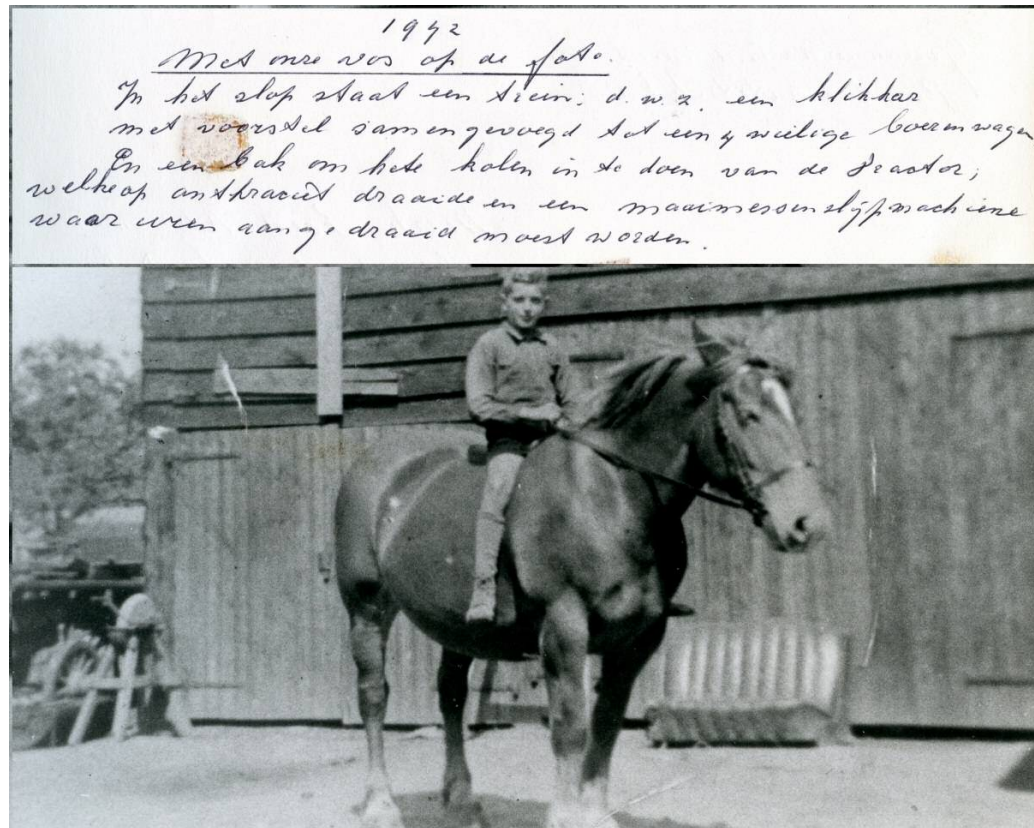 1942
Met onze vos op de foto.
In het slop staat een trein; d.w.z. een klikkar
met voorstel samengevoegd tot een 4 wielige boerenwagen
En een bak om hete kolen in te doen van de Tractor;
welke op anthraciet draaide en een maaimessenslijpmachiene
waar uren aan gedraaid moest worden.